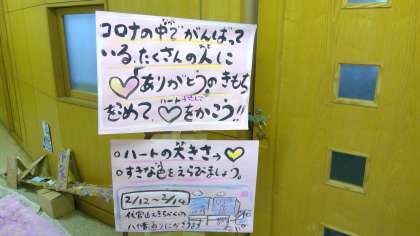 コロナの中でがんばって
いる、たくさんの人に
♡ありがとう♡のきもち
をこめて、ハートをかこう!!
○ハートの大きさ→♡
○すきな色をえらびましょう。
2/12〜2/14